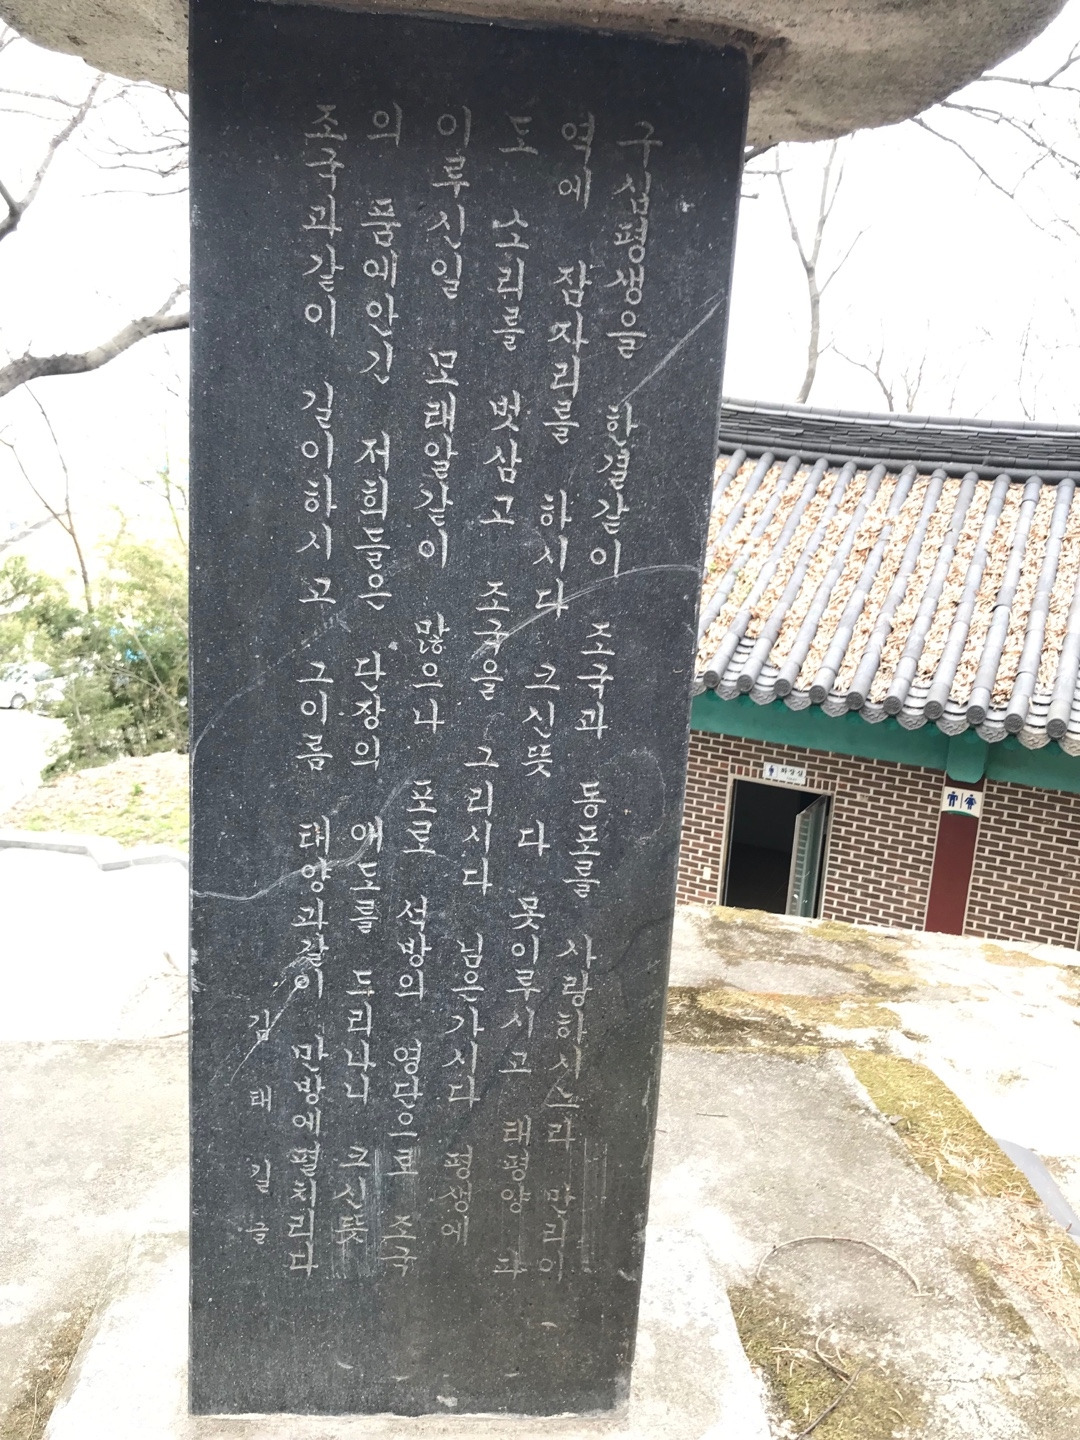 구십평생을 한결같이 조국과 동포를 사랑하시느라 만리이
역에 잠자리를 하시다 그신뜻 다 못이루시고 태평양 파
도 소리를 벗삼고 조국을 그리시다 님은가시다 평생에
이루신일 모래알같이 많으나 포로 석방의 영단으로 조국
의 품에안긴 저희들은 단장의 애도를 드리나니 그신뜻
조국과같이 길이하시고 그이름 태양과같이 만방에펼치리다
김태길 글
화장실